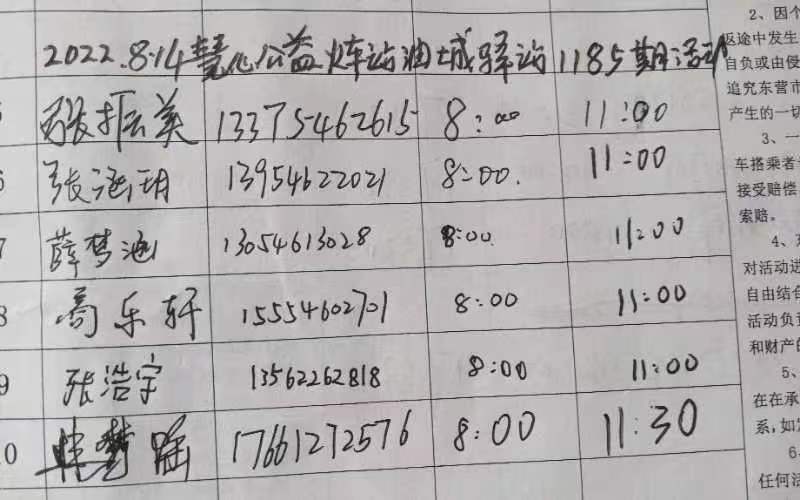 2022.8.14 慧心公益 炼站油城驿站 1185期活动
5 张振美 13375462615 8:00 11:00
6 张涵玥 13954622021 8:00. 11:00
7 薛梦涵 13054613028 8:00. 11:00
8 高乐轩 15554602701 8:00 11:00
9 张浩宇 13562262818 8:00 11:00
10 17661272576 8:00 11:30
2、因个
返途中发生
自负或由侵
追究东营市
产生的一切
3、一
车搭乘者
接受赔偿
索赔。
4、
对活动进
自由结合
活动负责
和财产的
5、
在在承
系,如
6、
任何活